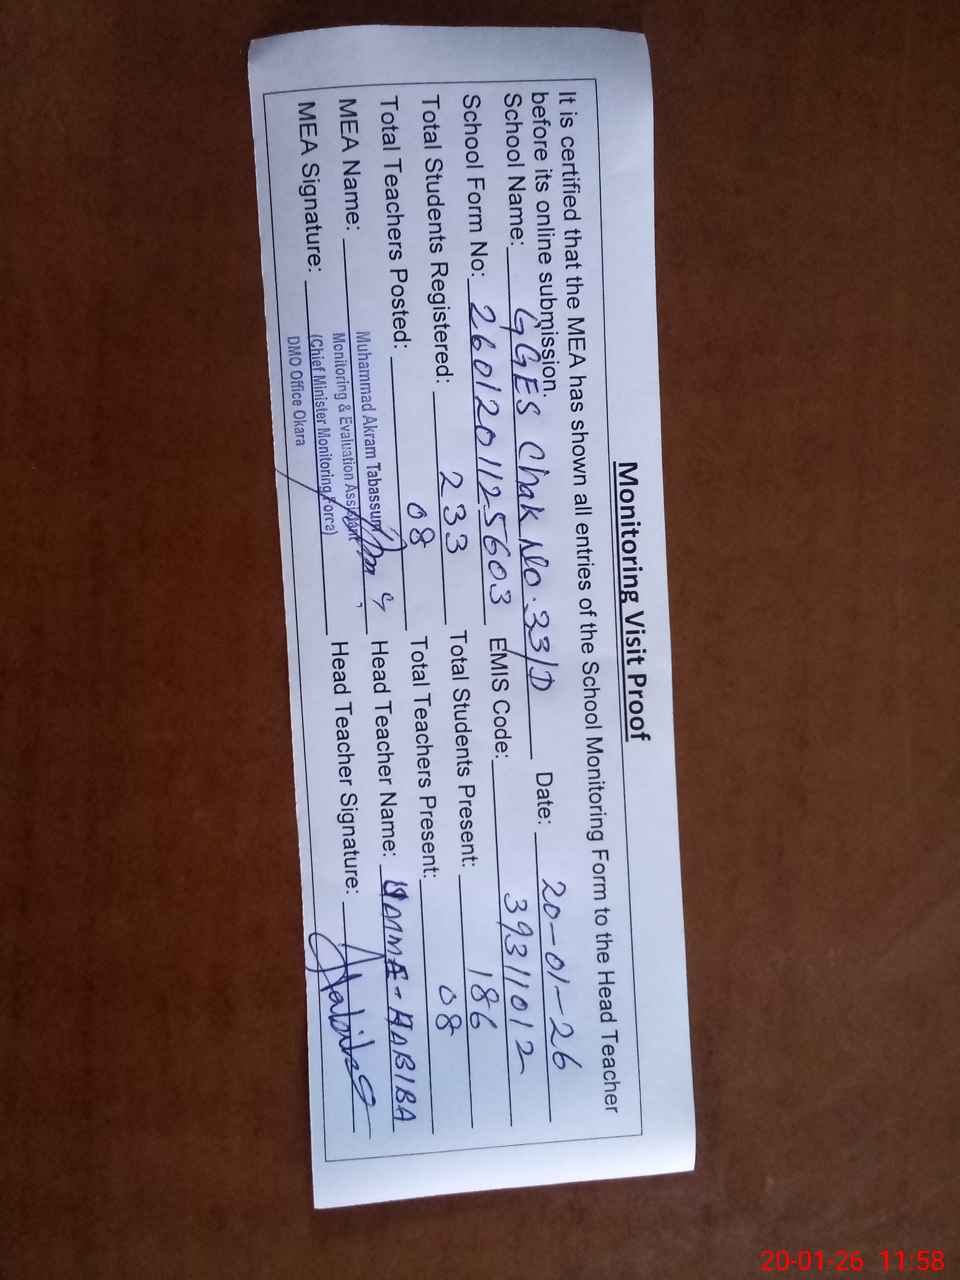 Monitoring Visit Proof
It is certified that the MEA has shown all entries of the School Monitoring Form to the Head Teacher
before its online submission.
School Name: GGES Chak No. 33/D Date: 20-01-26
School Form No: 2601201125603 EMIS Code: 39311012
Total Students Registered: 233 Total Students Present: 186
Total Teachers Posted: 08 Total Teachers Present: 08
MEA Name: Head Teacher Name: UMME-HABIBA
MEA Signature: Head Teacher Signature: Habiba
Muhammad Akram Tabassum
Monitoring & Evaluation Assistant
(Chief Minister Monitoring Force)
DMO Office Okara
20-01-26 11:58